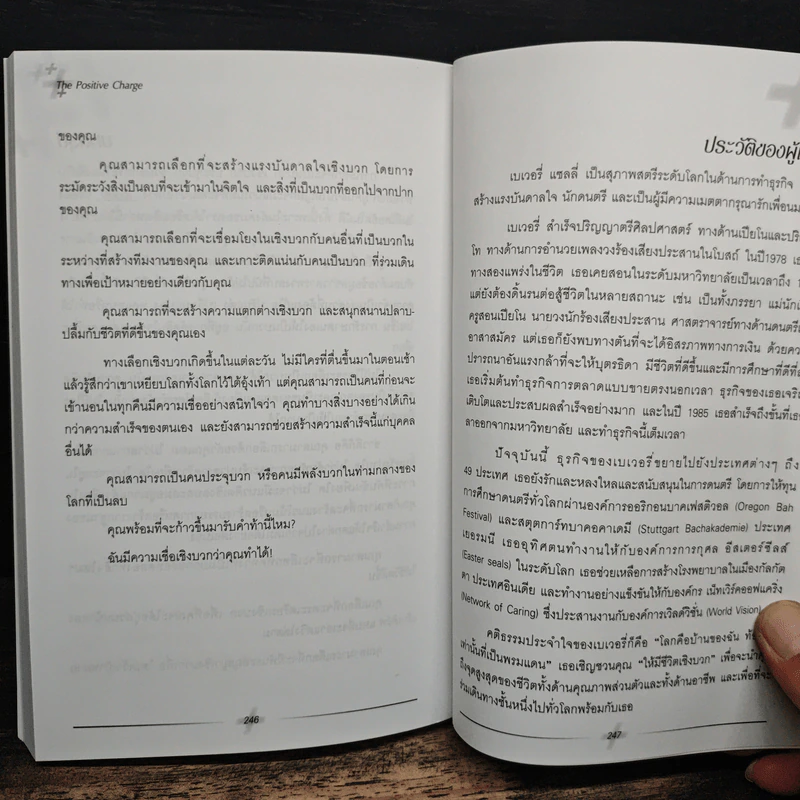 The Positive Charge
ของคุณ
คุณสามารถเลือกที่จะสร้างแรงบันดาลใจเชิงบวก โดยการ
ระมัดระวังสิ่งเป็นลบที่จะเข้ามาในจิตใจ และสิ่งที่เป็นบวกที่ออกไปจากปาก
ของคุณ
คุณสามารถเลือกที่จะเชื่อมโยงในเชิงบวกกับคนอื่นที่เป็นบวกใน
ระหว่างที่สร้างทีมงานของคุณ และเกาะติดแน่นกับคนเป็นบวก ที่ร่วมเดิน
ทางเพื่อเป้าหมายอย่างเดียวกับคุณ
คุณสามารถที่จะสร้างความแตกต่างเชิงบวก และสนุกสนานปลาบ-
ปลื้มกับชีวิตที่ดีขึ้นของคุณเอง
ทางเลือกเชิงบวกเกิดขึ้นในแต่ละวัน ไม่มีใครที่ตื่นขึ้นมาในตอนเช้า
แล้วรู้สึกว่าเขาเหยียบโลกทั้งโลกไว้ใต้อุ้งเท้า แต่คุณสามารถเป็นคนที่ก่อนจะ
เข้านอนในทุกคืนมีความเชื่ออย่างสนิทใจว่า คุณทำบางสิ่งบางอย่างได้เกิน
กว่าความสำเร็จของตนเอง และยังสามารถช่วยสร้างความสำเร็จนี้แก่บุคคล
อื่นได้
คุณสามารถเป็นคนประจุบวก หรือคนมีพลังบวกในท่ามกลางของ
โลกที่เป็นลบ
คุณพร้อมที่จะก้าวขึ้นมารับคำท้านี้ไหม?
ฉันมีความเชื่อเชิงบวกว่าคุณทำได้!
246
ประวัติของผู้
เบเวอรี่ แซลลี่ เป็นสุภาพสตรีระดับโลกในด้านการทำธุรกิจ
สร้างแรงบันดาลใจ นักดนตรี และเป็นผู้มีความเมตตากรุณารักเพื่อนม
เบเวอรี่ สำเร็จปริญญาตรีศิลปศาสตร์ ทางด้านเปียโนและปริ
โท ทางด้านการอำนวยเพลงวงร้องเสียงประสานในโบสถ์ ในปี1978 เธ
ทางสองแพร่งในชีวิต เธอเคยสอนในระดับมหาวิทยาลัยเป็นเวลาถึง
แต่ยังต้องดิ้นรนต่อสู้ชีวิตในหลายสถานะ เช่น เป็นทั้งภรรยา แม่นักเ
ครูสอนเปียโน นายวงนักร้องเสียงประสาน ศาสตราจารย์ทางด้านดนตรี
อาสาสมัคร แต่เธอก็ยังพบทางตันที่จะได้อิสรภาพทางการเงิน ด้วยคว
ปรารถนาอันแรงกล้าที่จะให้บุตรธิดา มีชีวิตที่ดีขึ้นและมีการศึกษาที่ดีที่
เธอเริ่มต้นทำธุรกิจการตลาดแบบขายตรงนอกเวลา ธุรกิจของเธอเจริ
เติบโตและประสบผลสำเร็จอย่างมาก และในปี 1985 เธอสำเร็จถึงขั้นที่เธอ
ลาออกจากมหาวิทยาลัย และทำธุรกิจนี้เต็มเวลา
ปัจจุบันนี้ ธุรกิจของเบเวอรี่ขยายไปยังประเทศต่างๆ ถึง
49 ประเทศ เธอยังรักและหลงใหลและสนับสนุนในการดนตรี โดยการให้ทุน
การศึกษาดนตรีทั่วโลกผ่านองค์การออริกอนบาคเฟสติวอล (Oregon Bah
Festival) และสตุตการ์ทบาคอคาเดมี (Stuttgart Bachakademie) ประเทศ
เยอรมนี เธออุทิศตนทำงานให้กับองค์การการกุศล อีสเตอร์ซีลส์
(Easter seals) ในระดับโลก เธอช่วยเหลือการสร้างโรงพยาบาลในเมืองกัลกัต
ตา ประเทศอินเดีย และทำงานอย่างแข็งขันให้กับองค์กร เน็ทเวิร์คออฟแคริ่ง
(Network of Caring) ซึ่งประสานงานกับองค์การเวิลด์วิชั่น (World Vision)
คติธรรมประจำใจของเบเวอรี่ก็คือ "โลกคือบ้านของฉัน ท้อ
เท่านั้นที่เป็นพรมแดน" เธอเชิญชวนคุณ "ให้มีชีวิตเชิงบวก" เพื่อจะนำคุ
ถึงจุดสูงสุดของชีวิตทั้งด้านคุณภาพส่วนตัวและทั้งด้านอาชีพ และเพื่อที่จะ
ร่วมเดินทางชั้นหนึ่งไปทั่วโลกพร้อมกับเธอ
247